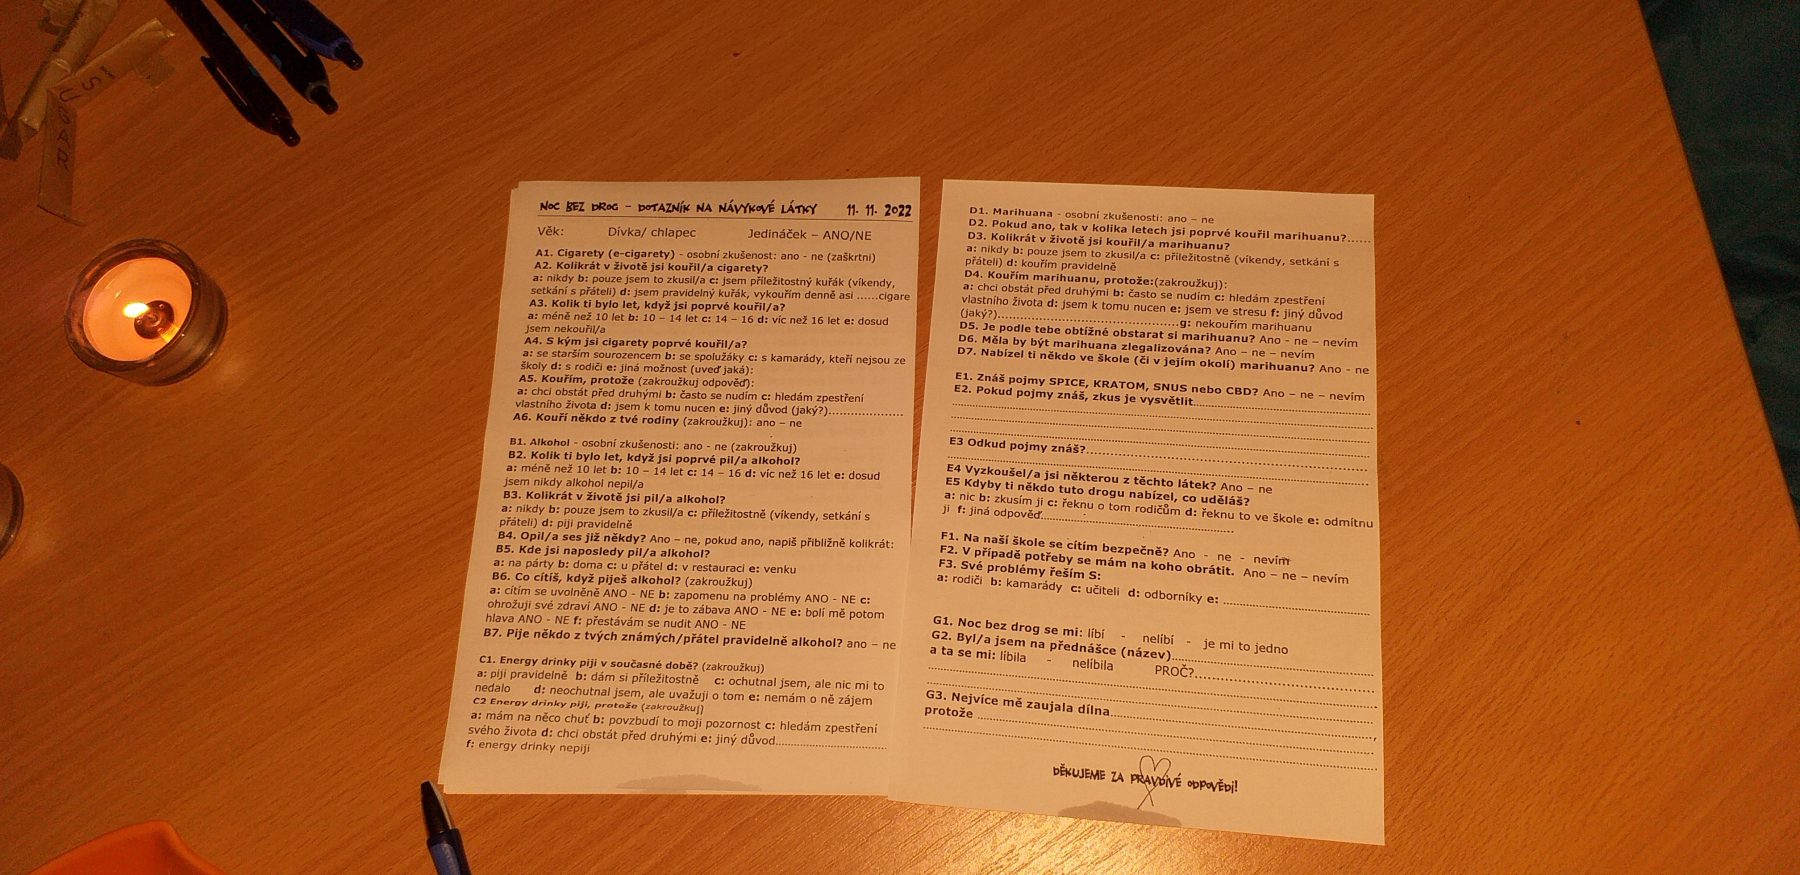 SUGAR
NOC BEZ DROG – DOTAZNÍK NA NÁVYKOVÉ LÁTKY 11. 11. 2022
Věk: Dívka/ chlapec Jedináček – ANO/NE
A1. Cigarety (e-cigarety) - osobní zkušenost: ano - ne (zaškrtni)
A2. Kolikrát v životě jsi kouřil/a cigarety?
a: nikdy b: pouze jsem to zkusil/a c: jsem příležitostný kuřák (víkendy,
setkání s přáteli) d: jsem pravidelný kuřák, vykouřím denně asi ......cigare
A3. Kolik ti bylo let, když jsi poprvé kouřil/a?
a: méně než 10 let b: 10 – 14 let c: 14 – 16 d: víc než 16 let e: dosud
jsem nekouřil/a
A4. S kým jsi cigarety poprvé kouřil/a?
a: se starším sourozencem b: se spolužáky c: s kamarády, kteří nejsou ze
školy d: s rodiči e: jiná možnost (uveď jaká):
A5. Kouřím, protože (zakroužkuj odpověď):
a: chci obstát před druhými b: často se nudím c: hledám zpestření
vlastního života d: jsem k tomu nucen e: jiný důvod (jaký?)...................
A6. Kouří někdo z tvé rodiny (zakroužkuj): ano – ne
B1. Alkohol - osobní zkušenosti: ano - ne (zakroužkuj)
B2. Kolik ti bylo let, když jsi poprvé pil/a alkohol?
a: méně než 10 let b: 10 – 14 let c: 14 – 16 d: víc než 16 let e: dosud
jsem nikdy alkohol nepil/a
B3. Kolikrát v životě jsi pil/a alkohol?
a: nikdy b: pouze jsem to zkusil/a c: příležitostně (víkendy, setkání s
přáteli) d: piji pravidelně
B4. Opil/a ses již někdy? Ano – ne, pokud ano, napiš přibližně kolikrát:
B5. Kde jsi naposledy pil/a alkohol?
a: na párty b: doma c: u přátel d: v restauraci e: venku
B6. Co cítíš, když piješ alkohol? (zakroužkuj)
a: cítím se uvolněně ANO - NE b: zapomenu na problémy ANO - NE c:
ohrožuji své zdraví ANO - NE d: je to zábava ANO - NE e: bolí mě potom
hlava ANO - NE f: přestávám se nudit ANO - NE
B7. Pije někdo z tvých známých/přátel pravidelně alkohol? ano – ne
C1. Energy drinky piji v současné době? (zakroužkuj)
a: piji pravidelně b: dám si příležitostně c: ochutnal jsem, ale nic mi to
nedalo d: neochutnal jsem, ale uvažuji o tom e: nemám o ně zájem
C2 Energy drinky piji, protože (zakroužkuj)
a: mám na něco chuť b: povzbudí to moji pozornost c: hledám zpestření
svého života d: chci obstát před druhými e: jiný důvod............................
f: energy drinky nepiji
D1. Marihuana - osobní zkušenosti: ano – ne
D2. Pokud ano, tak v kolika letech jsi poprvé kouřil marihuanu?......
D3. Kolikrát v životě jsi kouřil/a marihuanu?
a: nikdy b: pouze jsem to zkusil/a c: příležitostně (víkendy, setkání s
přáteli) d: kouřím pravidelně
D4. Kouřím marihuanu, protože:(zakroužkuj):
a: chci obstát před druhými b: často se nudím c: hledám zpestření
vlastního života d: jsem k tomu nucen e: jsem ve stresu f: jiný důvod
(jaký?)..............................................g: nekouřím marihuanu
D5. Je podle tebe obtížné obstarat si marihuanu? Ano - ne – nevím
D6. Měla by být marihuana zlegalizována? Ano – ne – nevím
D7. Nabízel ti někdo ve škole (či v jejím okolí) marihuanu? Ano - ne
E1. Znáš pojmy SPICE, KRATOM, SNUS nebo CBD? Ano – ne – nevím
E2. Pokud pojmy znáš, zkus je vysvětlit.............................................
E3 Odkud pojmy znáš?......................................................................
E4 Vyzkoušel/a jsi některou z těchto látek? Ano – ne
E5 Kdyby ti někdo tuto drogu nabízel, co uděláš?
a: nic b: zkusím ji c: řeknu o tom rodičům d: řeknu to ve škole e: odmítnu
ji f: jiná odpověď................................................
F1. Na naší škole se cítím bezpečně? Ano - ne - nevím
F2. V případě potřeby se mám na koho obrátit. Ano – ne – nevím
F3. Své problémy řeším S:
a: rodiči b: kamarády c: učiteli d: odborníky e: ....................................
G1. Noc bez drog se mi: líbí - nelíbí - je mi to jedno
G2. Byl/a jsem na přednášce (název)..................................................
a ta se mi: líbila - nelíbila PROČ?.............................................
G3. Nejvíce mě zaujala dílna................................................................,
protože ..................................................................................................
DĚKUJEME ZA PRAVDIVÉ ODPOVĚDI!